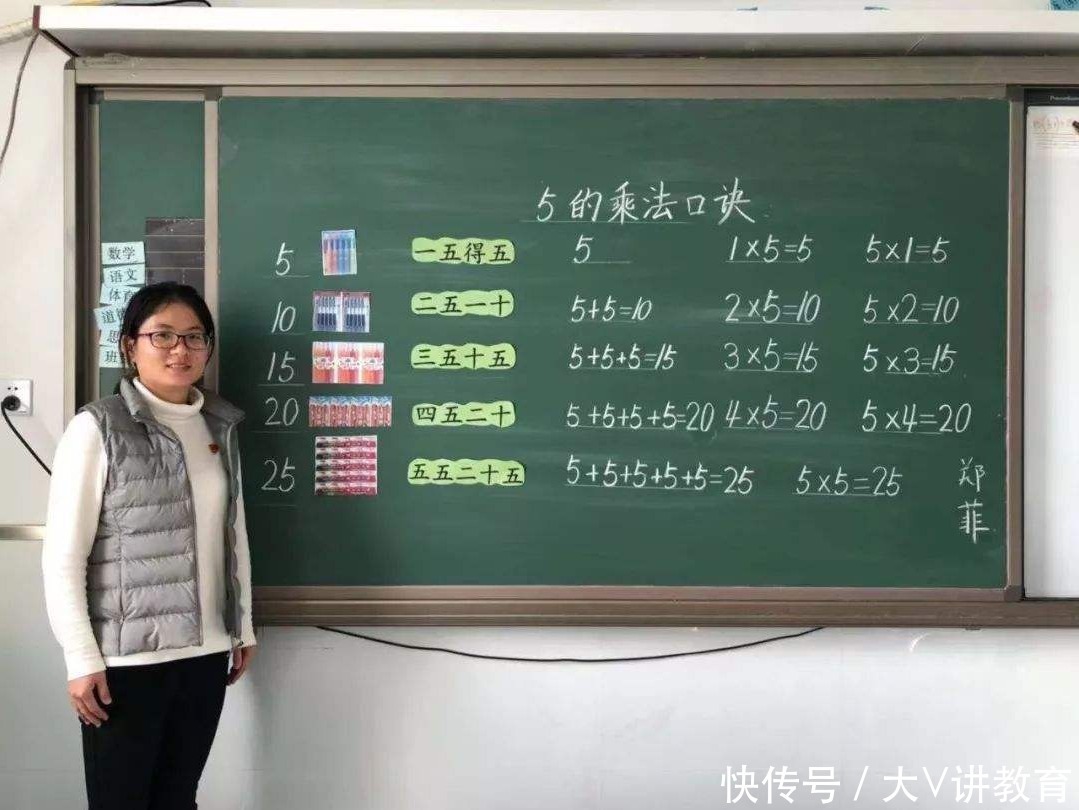 5的乘法口诀
5 一五得五 5 1×5=5 5×1=5
10 二五一十 5+5=10 2×5=10 5×2=10
15 三五十五 5+5+5=15 3×5=15 5×3=15
20 四五二十 5+5+5+5=20 4×5=20 5×4=20
25 五五二十五 5+5+5+5+5=25 5×5=25
郑菲
数学
语文
体育
道德
思
班
快传号 / 大V讲教育